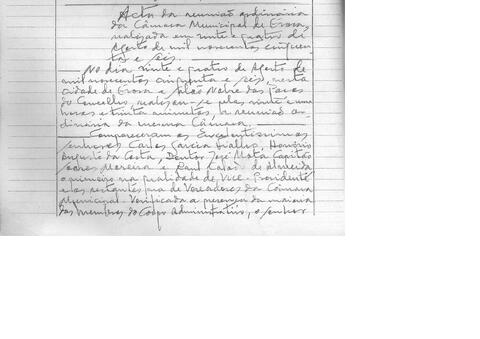 Acta da reunião ordinária
da Câmara Municipal de Évora,
realizada em vinte e quatro de
Agosto de mil novecentos cinquen-
ta e seis.
No dia vinte e quatro de Agosto de
mil novecentos cinquenta e seis, nesta
cidade de Évora e salão Nobre dos Paços
do Concelho, realizou-se pelas vinte e uma
horas e trinta minutos, a reunião or-
dinária da mesma Câmara.
Compareceram os Excelentíssimos
senhores Carlos Garcia, Honório
Augusto da Costa, Doutor José Mata Capitão
Soares Moreira e Raul de Almeida
o primeiro na qualidade de Vice-Presidente
e os restantes na de Vereadores da Câmara
Municipal. Verificada a presença da maioria
dos membros do Corpo Administrativo, o senhor